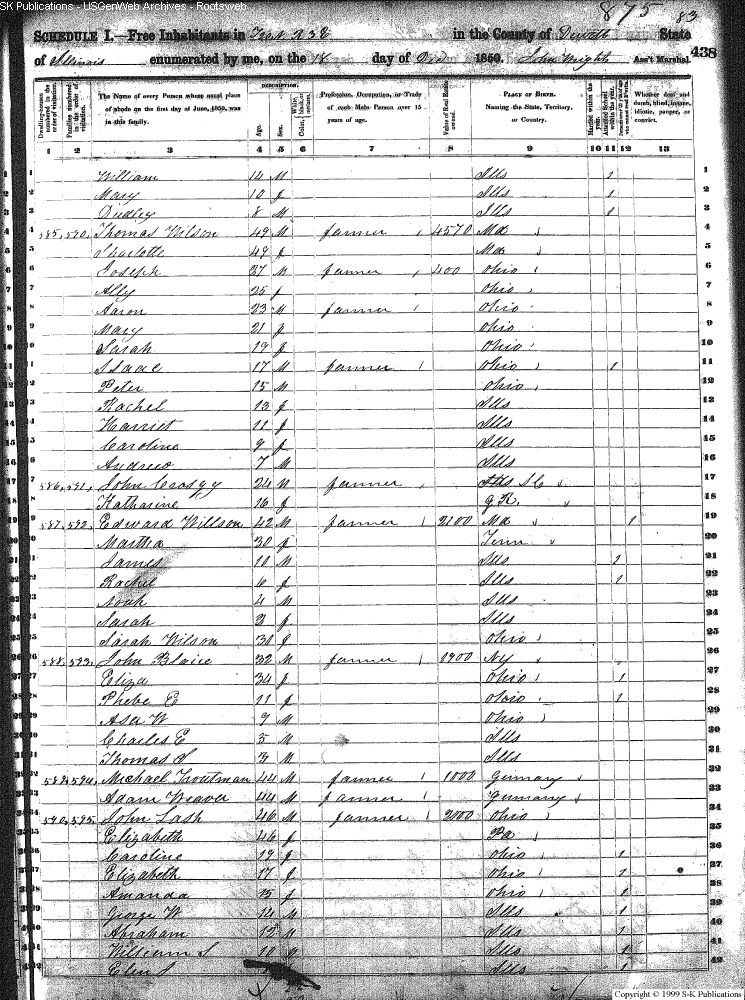 SK Publications - USGenWeb Archives - Rootsweb
875 83
SCHEDULE I.—Free Inhabitants in 232 in the County of Dewitt State
of Illinois enumerated by me, on the 18 day of 1850. John Wright Ass't Marshal. 438
Dwelling-houses numbered in the order of visitation.
Families numbered in the order of visitation.
The Name of every Person whose usual place of abode on the first day of June, 1850, was in this family.
DESCRIPTION.
Age.
Sex.
White, black, or mulatto.
Color,
Profession, Occupation, or Trade of each Male Person over 15 years of age.
Value of Real Estate owned.
PLACE OF BIRTH. Naming the State, Territory, or Country.
Married within the year.
Attended School within the year.
Whether deaf and dumb, blind, insane, idiotic, pauper, or convict.
1 2 3 4 5 6 7 8 9 10 11 12 13
1 William 14 M Ills 1 1
2 Mary 10 f Ills 1 2
3 Dudley 8 M Ills 1 3
4 585 590 Thomas Wilson 49 M farmer 4570 Md 4
5 Charlotte 49 f Md 5
6 Joseph 27 M farmer 400 Ohio 6
7 Ally 25 f Ohio 7
8 Aaron 23 M farmer Ohio 8
9 Mary 21 f Ohio 9
10 Sarah 19 f Ohio 10
11 Isaac 17 M farmer Ohio 1 11
12 Peter 15 M Ohio 12
13 Rachel 13 f Ills 13
14 Harriet 11 f Ills 14
15 Caroline 9 f Ills 15
16 Andrew 7 M Ills 16
17 586 591 John 24 M farmer 17
18 Katharine 16 f 18
19 587 592 Edward Willson 42 M farmer 2100 Md 1 19
20 Martha 30 f Tenn 20
21 James 10 M Ills 1 21
22 Rachel 6 f Ills 1 22
23 Noah 4 M Ills 23
24 Sarah 2 f Ills 24
25 Sarah Wilson 31 f Ohio 25
26 588 593 John Blaice 32 M farmer 1900 NY 26
27 Eliza 34 f Ohio 1 27
28 Phebe E 11 f Ohio 1 28
29 Asa W 9 M Ohio 29
30 Charles E 5 M Ills 30
31 Thomas S 3 M Ills 31
32 589 594 Michael Troutman 44 M farmer 1000 Germany 32
33 Adam Weaver 44 M farmer Germany 33
34 590 595 John Lash 46 M farmer 2000 Ohio 34
35 Elizabeth 46 f Pa 35
36 Caroline 19 f Ohio 1 36
37 Elizabeth 17 f Ohio 1 37
38 Amanda 15 f Ohio 1 38
39 George W 14 M Ills 1 39
40 Abraham 12 M Ills 1 40
41 William S 10 Ills 1 41
42 Ills 1 42
Copyright © 1999 S-K Publications